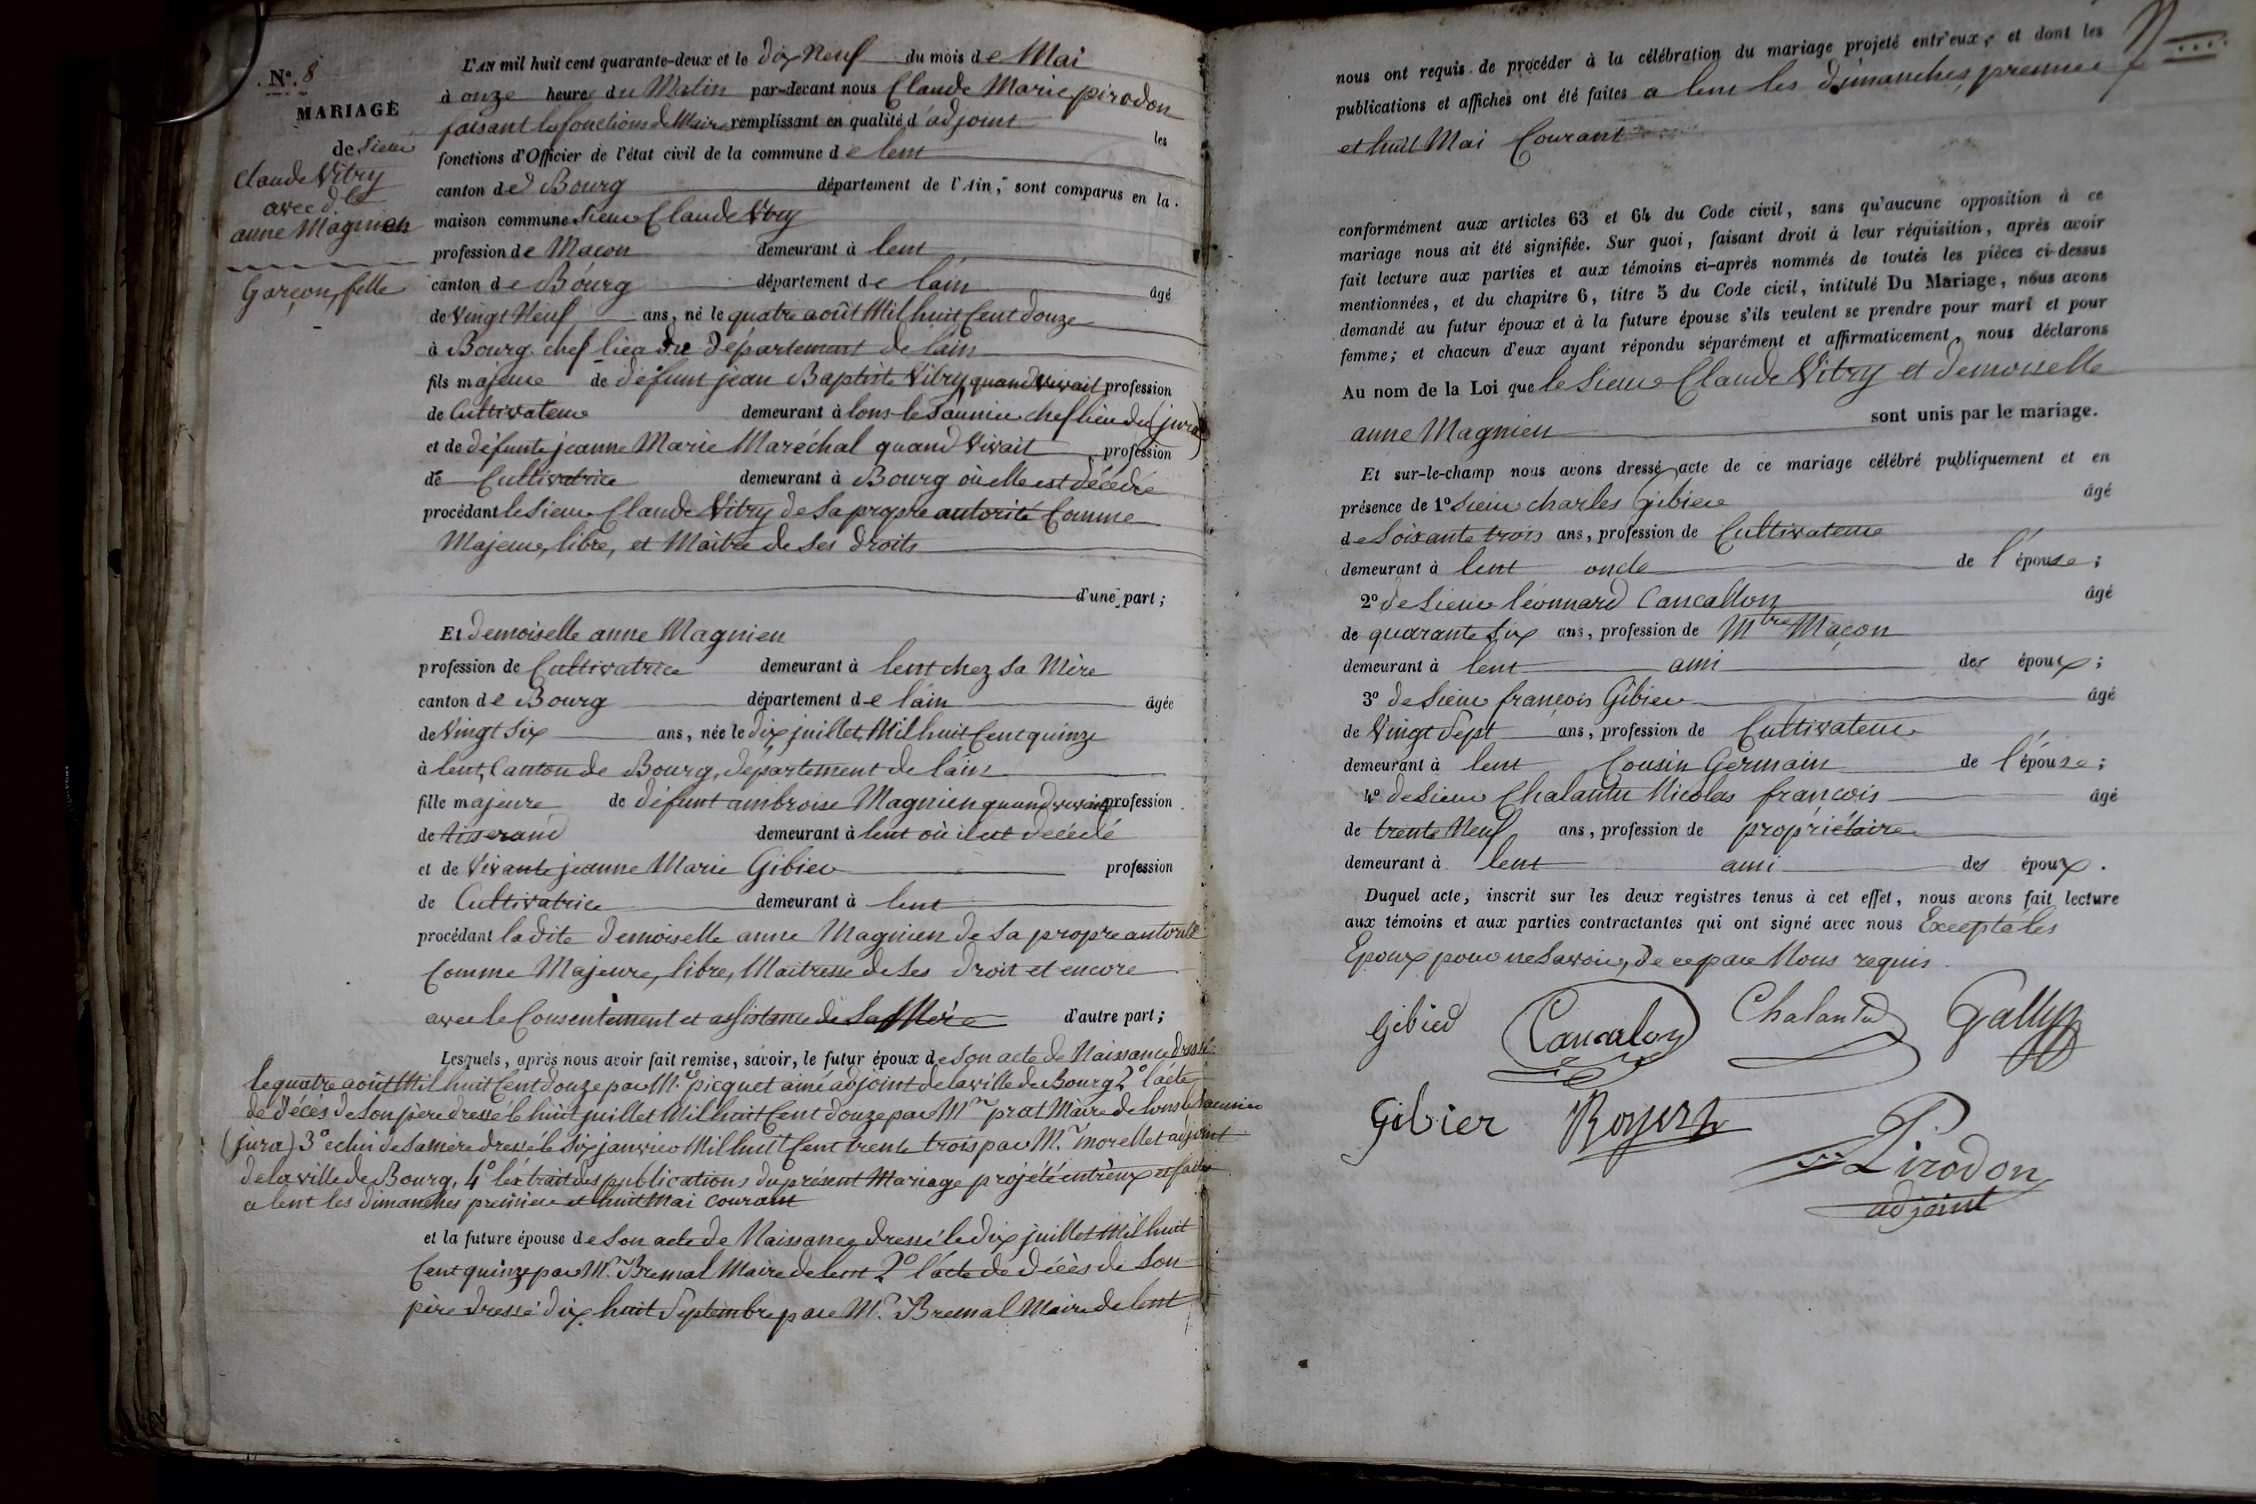 N.o 8
MARIAGE
de Sieur
Claude Vitry
avec d.lle
anne Magnien
Garçon, fille
L'AN mil huit cent quarante-deux et le dix Neuf du mois de Mai
à onze heure du Matin par-devant nous Claude Marie pirodon
faisant les fonctions de Maire remplissant en qualité d'adjoint les
fonctions d'Officier de l'état civil de la commune de lent
canton de Bourg département de l'Ain, sont comparus en la
maison commune Sieur Claude Vitry
profession de Maçon demeurant à lent
canton de Bourg département de lain âgé
de Vingt Neuf ans, né le quatre août Mil huit Cent douze
à Bourg chef lieu du département de lain
fils majeur de défunt jean Baptiste Vitry quand vivait profession
de Cultivateur demeurant à lons-le-Saunier chef lieu du (jura)
et de défunte jeanne Marie Maréchal quand vivait profession
de Cultivatrice demeurant à Bourg où elle est décédée
procédant le Sieur Claude Vitry de Sa propre autorité Comme
Majeur, libre, et Maître de Ses droits
d'une part;
Et demoiselle anne Magnien
profession de Cultivatrice demeurant à lent chez Sa Mère
canton de Bourg département de lain âgée
de Vingt Six ans, née le dix juillet Mil huit Cent quinze
à lent, Canton de Bourg, département de lain
fille majeure de défunt ambroise Magnien quand vivait profession
de tisserand demeurant à lent où il est décédé
et de Vivante jeanne Marie Gibier profession
de Cultivatrice demeurant à lent
procédant la dite demoiselle anne Magnien de Sa propre autorité
Comme Majeure, libre, Maitresse de Ses droit et encore
avec le Consentement et assistance de Sa Mère d'autre part;
Lesquels, après nous avoir fait remise, savoir, le futur époux de Son acte de Naissance dressé
le quatre août Mil huit Cent douze par M.r picquet ainé adjoint de la ville de Bourg 2o l'acte
de décès de Son père dressé le huit juillet Mil huit Cent douze par M.r prat Maire de lons le Saunier
(jura) 3o celui de Sa mère dressé le Six janvier Mil huit Cent trente trois par M.r morellet adjoint
de la ville de Bourg, 4o l'extrait des publications du présent Mariage projété entr'eux et faites
a lent les dimanches premier et huit Mai courant
et la future épouse de Son acte de Naissance dressé le dix juillet Mil huit
Cent quinze par M.r Bremal Maire de lent 2o l'acte de décès de Son
père dressé dix huit Septembre par M.r Bremal Maire de lent
nous ont requis de procéder à la célébration du mariage projeté entr'eux, et dont les
publications et affiches ont été faites a lent les dimanches premier
et huit Mai Courant
conformément aux articles 63 et 64 du Code civil, sans qu'aucune opposition à ce
mariage nous ait été signifiée. Sur quoi, faisant droit à leur réquisition, après avoir
fait lecture aux parties et aux témoins ci-après nommés de toutes les pièces ci-dessus
mentionnées, et du chapitre 6, titre 5 du Code cicil, intitulé Du Mariage, nous avons
demandé au futur époux et à la future épouse s'ils veulent se prendre pour mari et pour
femme; et chacun d'eux ayant répondu séparément et affirmaticement, nous déclarons
Au nom de la Loi que le Sieur Claude Vitry et demoiselle
anne Magnien sont unis par le mariage.
Et sur-le-champ nous avons dressé acte de ce mariage célébré publiquement et en
présence de 1o Sieur charles Gibier âgé
de Soixante trois ans, profession de Cultivateur
demeurant à lent oncle de l'épouse;
2o de Sieur léonnard Cancallon âgé
de quarante Six ans, profession de Mtre Maçon
demeurant à lent ami des époux;
3o de Sieur françois Gibier âgé
de Vingt Sept ans, profession de Cultivateur
demeurant à lent Cousin Germain de l'épouse;
4o de Sieur Chalantu Nicolas françois âgé
de trente Neuf ans, profession de propriétaire
demeurant à lent ami des époux.
Duquel acte, inscrit sur les deux registres tenus à cet effet, nous avons fait lecture
aux témoins et aux parties contractantes qui ont signé avec nous Excepté les
Epoux pour ne Savoir, de ce par Nous requis
Gibier Cancalon Chalantu Gallyp
Gibier Royer
Pirodon
adjoint